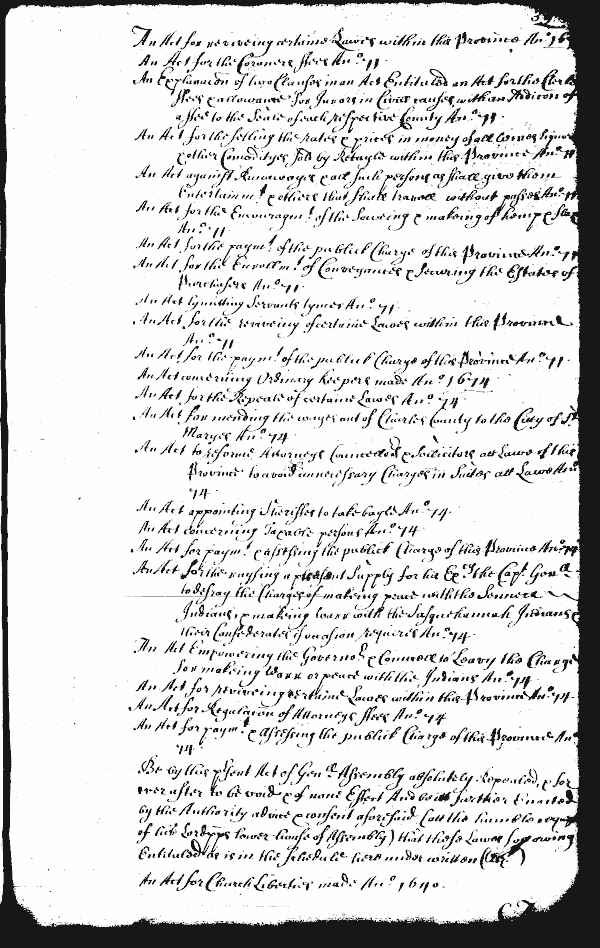 An Act for reviveing certaine Lawes within this Province An.º 16
An Act for the Coroners ffees An.º 71
An Explanacon of two Clauses in an Act Entituled an Act for the Clerks
ffees & allowance for Jurors in Civill causes with an Adicon of
a ffee to the Seale of each respective County An.º 71
An Act for the selling the rates & prices in money of all Wines Liquors
& other Comodityes sold by Retayle within this Province An.º 71
An Act against Runawayes & all such persons as shall give them
Entertainm.t & others that shall travell without passes An.º 71
An Act for the Encouragm.t of the Soweing & makeing of hemp & flax
An.º 71
An Act for the paym.t of the publick Charge of this Province An.º 71
An Act for the Enrollm.t of Conveyances & secureing the Estates of
Purchasers An.º 71
An Act Lymitting Servants tymes An.º 71
An Act for the reviveing of certaine Lawes within this Province
An.º 71
An Act for the paym.t of the publick Charge of this Province An.º 71
An Act concerning Ordinary keepers made An.º 1674
An Act for the Repeale of certaine Lawes An.º 74
An Act for mending the wayes out of Charles County to the Citty of S.t
Maryes An.º 74
An Act to reforme Attorneys Councello.rs & Sollicitors att Lawe of this
Province to avoid unnecessary Charges in Suites att Lawe An.º
74
An Act appointing Sheriffes to take bayle An.º 74
An Act concerning Taxable persons An.º 74
An Act for paym.t & assessing the publick Charge of this Province An.º 74
An Act for the raysing a present Supply for his Ex.cy the Cap.t Gen.ll
to defray the Charges of makeing peace with the Sennece
Indians & makeing warr with the Sasquehannah Indians &
their Confederates if ocasion requires An.º 74
An Act Empowering the Governo.r & Councell to Leavy the Charge
for makeing warr or peace with the Indians An.º 74
An Act for reviveing certaine Lawes within this Province An.º 74
An Act for Regulacon of Attorneys ffees An.º 74
An Act for paym.t & assessing the publick Charge of this Province An.º
74
Be by this p.sent Act of Gen.ll Assembly absolutely Repealed, & for
ever after to be void & of none Effect And be itt further Enacted
by the Authority advice & consent aforesaid (att the humble request
of his Lordpps lower house of Assembly) that these Lawes following
Entituled as is in the schedule here under written (Viz.t)
An Act for Church Liberties made An.º 1640